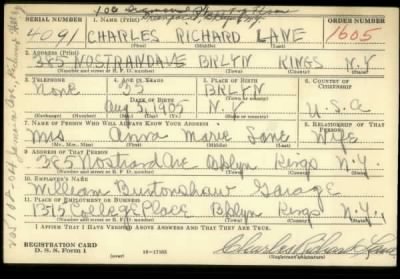 SERIAL NUMBER 1. NAME (Print) ORDER NUMBER
4091 CHARLES RICHARD LANE 1605
(First) (Middle) (Last)
2. ADDRESS (Print)
385 NOSTRAND AVE BRLYN KINGS N.Y
(Number and street or R. F. D. number) (Town) (County) (State)
3. TELEPHONE 4. AGE IN YEARS 5. PLACE OF BIRTH 6. COUNTRY OF CITIZENSHIP
None 35 BRLYN
DATE OF BIRTH
Aug 1905 N. U.S.A
(Exchange) (Number) (Mo.) (Day) (Yr.) (State or country)
7. NAME OF PERSON WHO WILL ALWAYS KNOW YOUR ADDRESS 8. RELATIONSHIP OF THAT PERSON
Mrs Anna Marie Lane Wife
(Mr., Mrs., Miss) (First) (Middle) (Last)
9. ADDRESS OF THAT PERSON
385 Nostrand Ave Bklyn Kings N.Y.
(Number and street or R. F. D. number) (Town) (County) (State)
10. EMPLOYER'S NAME
William Burtonshaw Garage
11. PLACE OF EMPLOYMENT OR BUSINESS
College Place Bklyn Kings N.Y.
(Number and street or R. F. D. number) (Town) (County) (State)
I AFFIRM THAT I HAVE VERIFIED ABOVE ANSWERS AND THAT THEY ARE TRUE.
REGISTRATION CARD
D. S. S. Form 1 (over) 16-17105 (Registrant's signature)
Charles Richard Lane